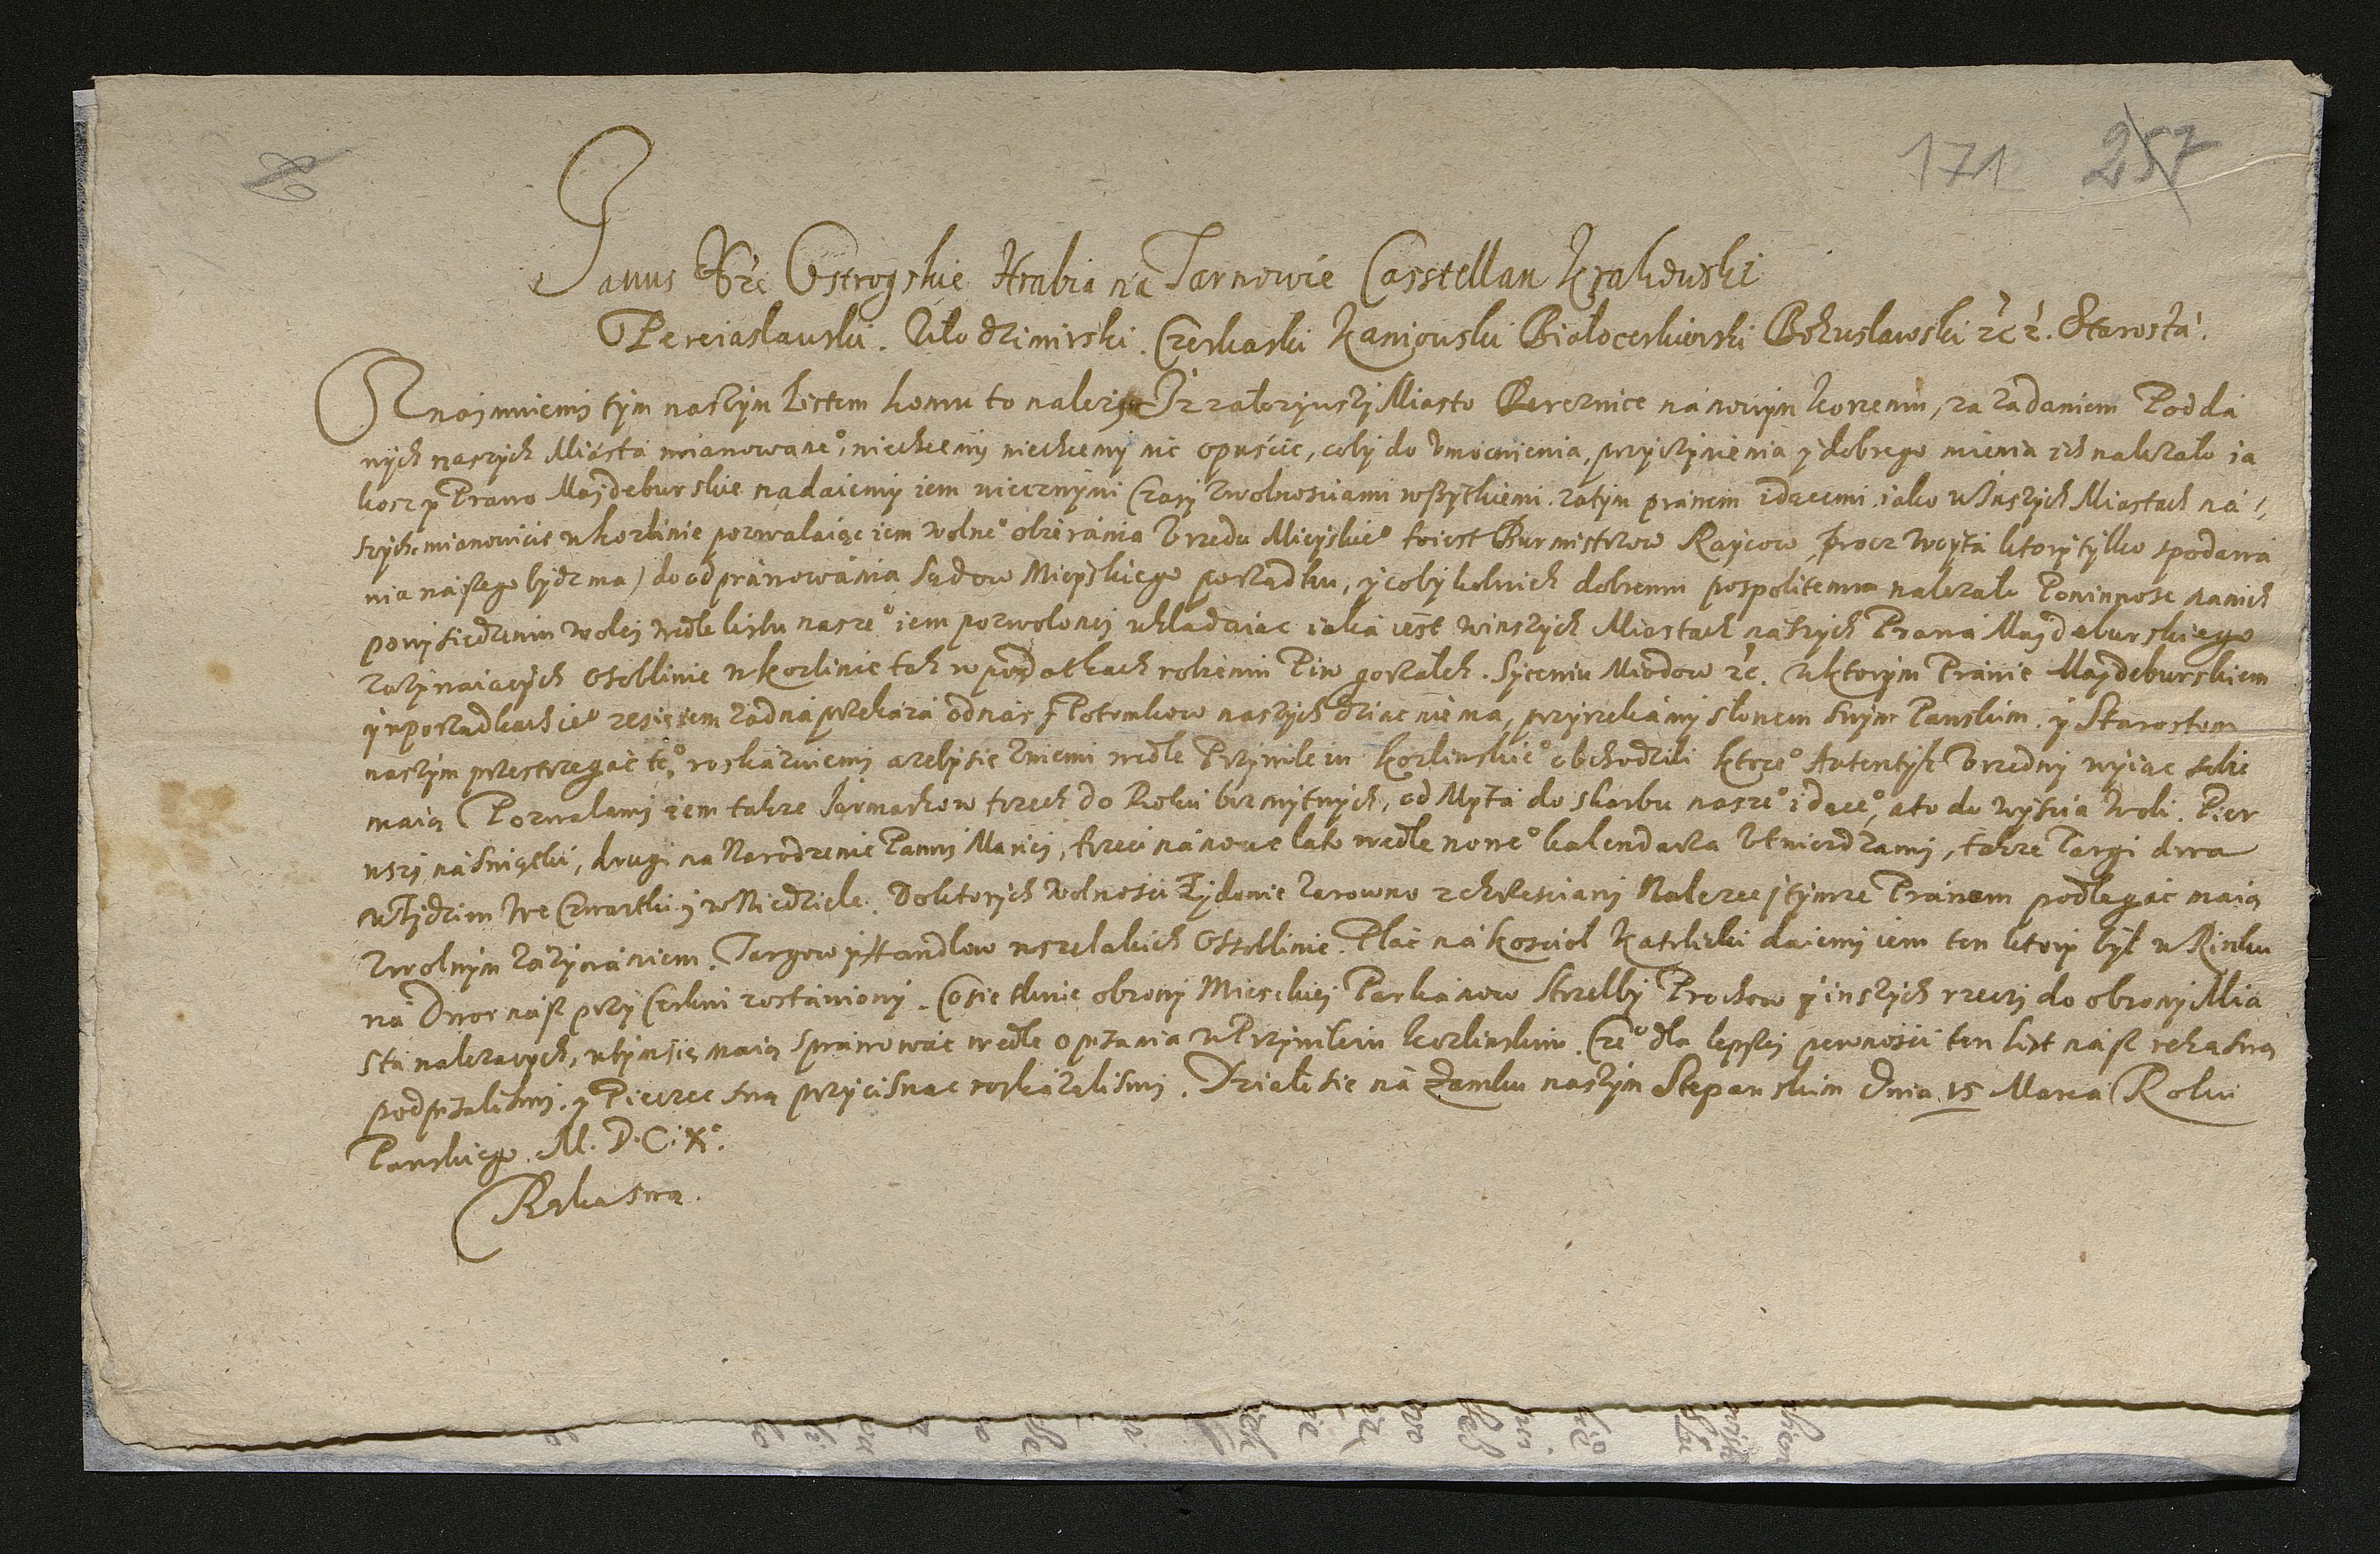 171 257
Janus Xże Ostrogskie Hrabia na Tarnowie Casstellan Krakowski
Pereiaslawski. Włodzimirski. Czerkaski Kaniowski Białocerkiewski Bohuslawski &c &. Starosta.
Oznajmujemy tym naszym Listem komu to należy Iż założywszy Miasto Bereznice na nowym korzeniu, za żądaniem Podda
nych naszych Miasta mianowane° niechcemy niechcemy nic opuścic, coby do umocnienia, przyczynienia y dobrego mienia ich należało ia
kosz y Prawo Majdeburskie nadaiemy iem wiecznymi Czasy zwolnosciami wszytkiemi zatym prawem idącemi iako w inszych Miastach na
szych mianowicie w Korlinie pozwalaiąc iem wolne° obierania Vrzedu Mieyskie° toiest Burmistrzow Raycow procz Woyta ktory tylko spodawa
nia naszego bydz ma) do odprawowania Sądow Mieyskiego porządku, y coby kolwiek dobremu pospolitemu należało Powinnosc nanich
powysiedzeniu woley wedle listu nasze° iem pozwoloney wkładaiąc iaka iest winszych Miastach naszych Prawa Majdeburskiego
zażywaiących Osobliwie w Korlinie tak w podatkach robieniu Piw gorzałek. Syceniu Miodow &c. w ktorym Prawie Majdeburskiem
y w porządkach ie° zesię iem żadna przekaza od nas y Potomkow naszych dziac niema, przyrzekamy słowem swym Panskim. y Starostom
naszym przestrzegac te° roskazuiemy azeby sie zniemi wedle Przywileiu Korlinskie° obchodzili ktore° Autentyk Vrzedny wyiąc sobie
maią Pozwalamy iem takze Jarmarkow trzech do Roku bezmytnych, od Myta do skarbu nasze° idące°, a to do wyscia woli. Pier
wszy na Swiątki, drugi na Narodzenie Panny Mariey, trzeci na nowe lato wedle nowe° kalendarza Vtwierdzamy, takze Targi dwa
w Tydzien we Czwartki y w Niedziele. Do ktorych wolnosci Żydowie zarowno z chrzesciany Nalezec y tymze Prawem podlegac maią
zwolnym zażywaniem. Targow y Handlow wszelakich Osobliwie Plac na koscioł Katolicki daiemy iem ten ktory był w Rinku
na Dwor nasz przy Cerkwi zostawiony. Co sie tknie obrony Mieskiej Parkanow Strzelby Prochow y inszych rzeczy do obrony Mia
sta nalezących, w tym się maią sprawowac wedle opisania w Przywileiu Korlinskim. Cze° dla lepszej pewnosci ten list nasz ręką swą
podpisalismy. y Pieczec swą przycisnac roskazalismy. Działo sie na Zamku naszym Stepanskim Dnia 15 Marca Roku
Panskiego. M. D. C. X°.
Ręka swą.